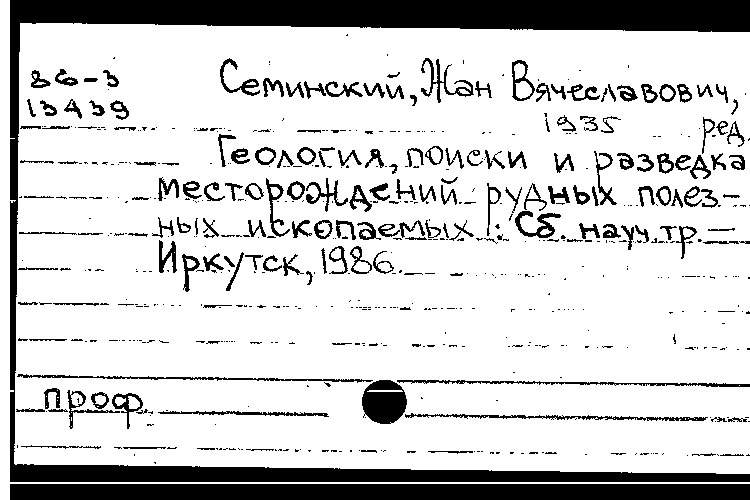 86-3
13439
Семинский, Жан Вячеславович,
1935 ред.
Геология, поиски и разведка
месторождений рудных полез-
ных ископаемых : Сб. науч. тр. —
Иркутск, 1986.
проф.